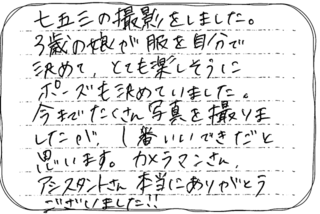 七五三の撮影をしました。
3歳の娘が服を自分で
決めて、とても楽しそうに
ポーズも決めていました。
今までたくさん写真を撮りま
したが、1番いいできだと
思います。カメラマンさん、
アシスタントさん本当にありがとう
ございました!!